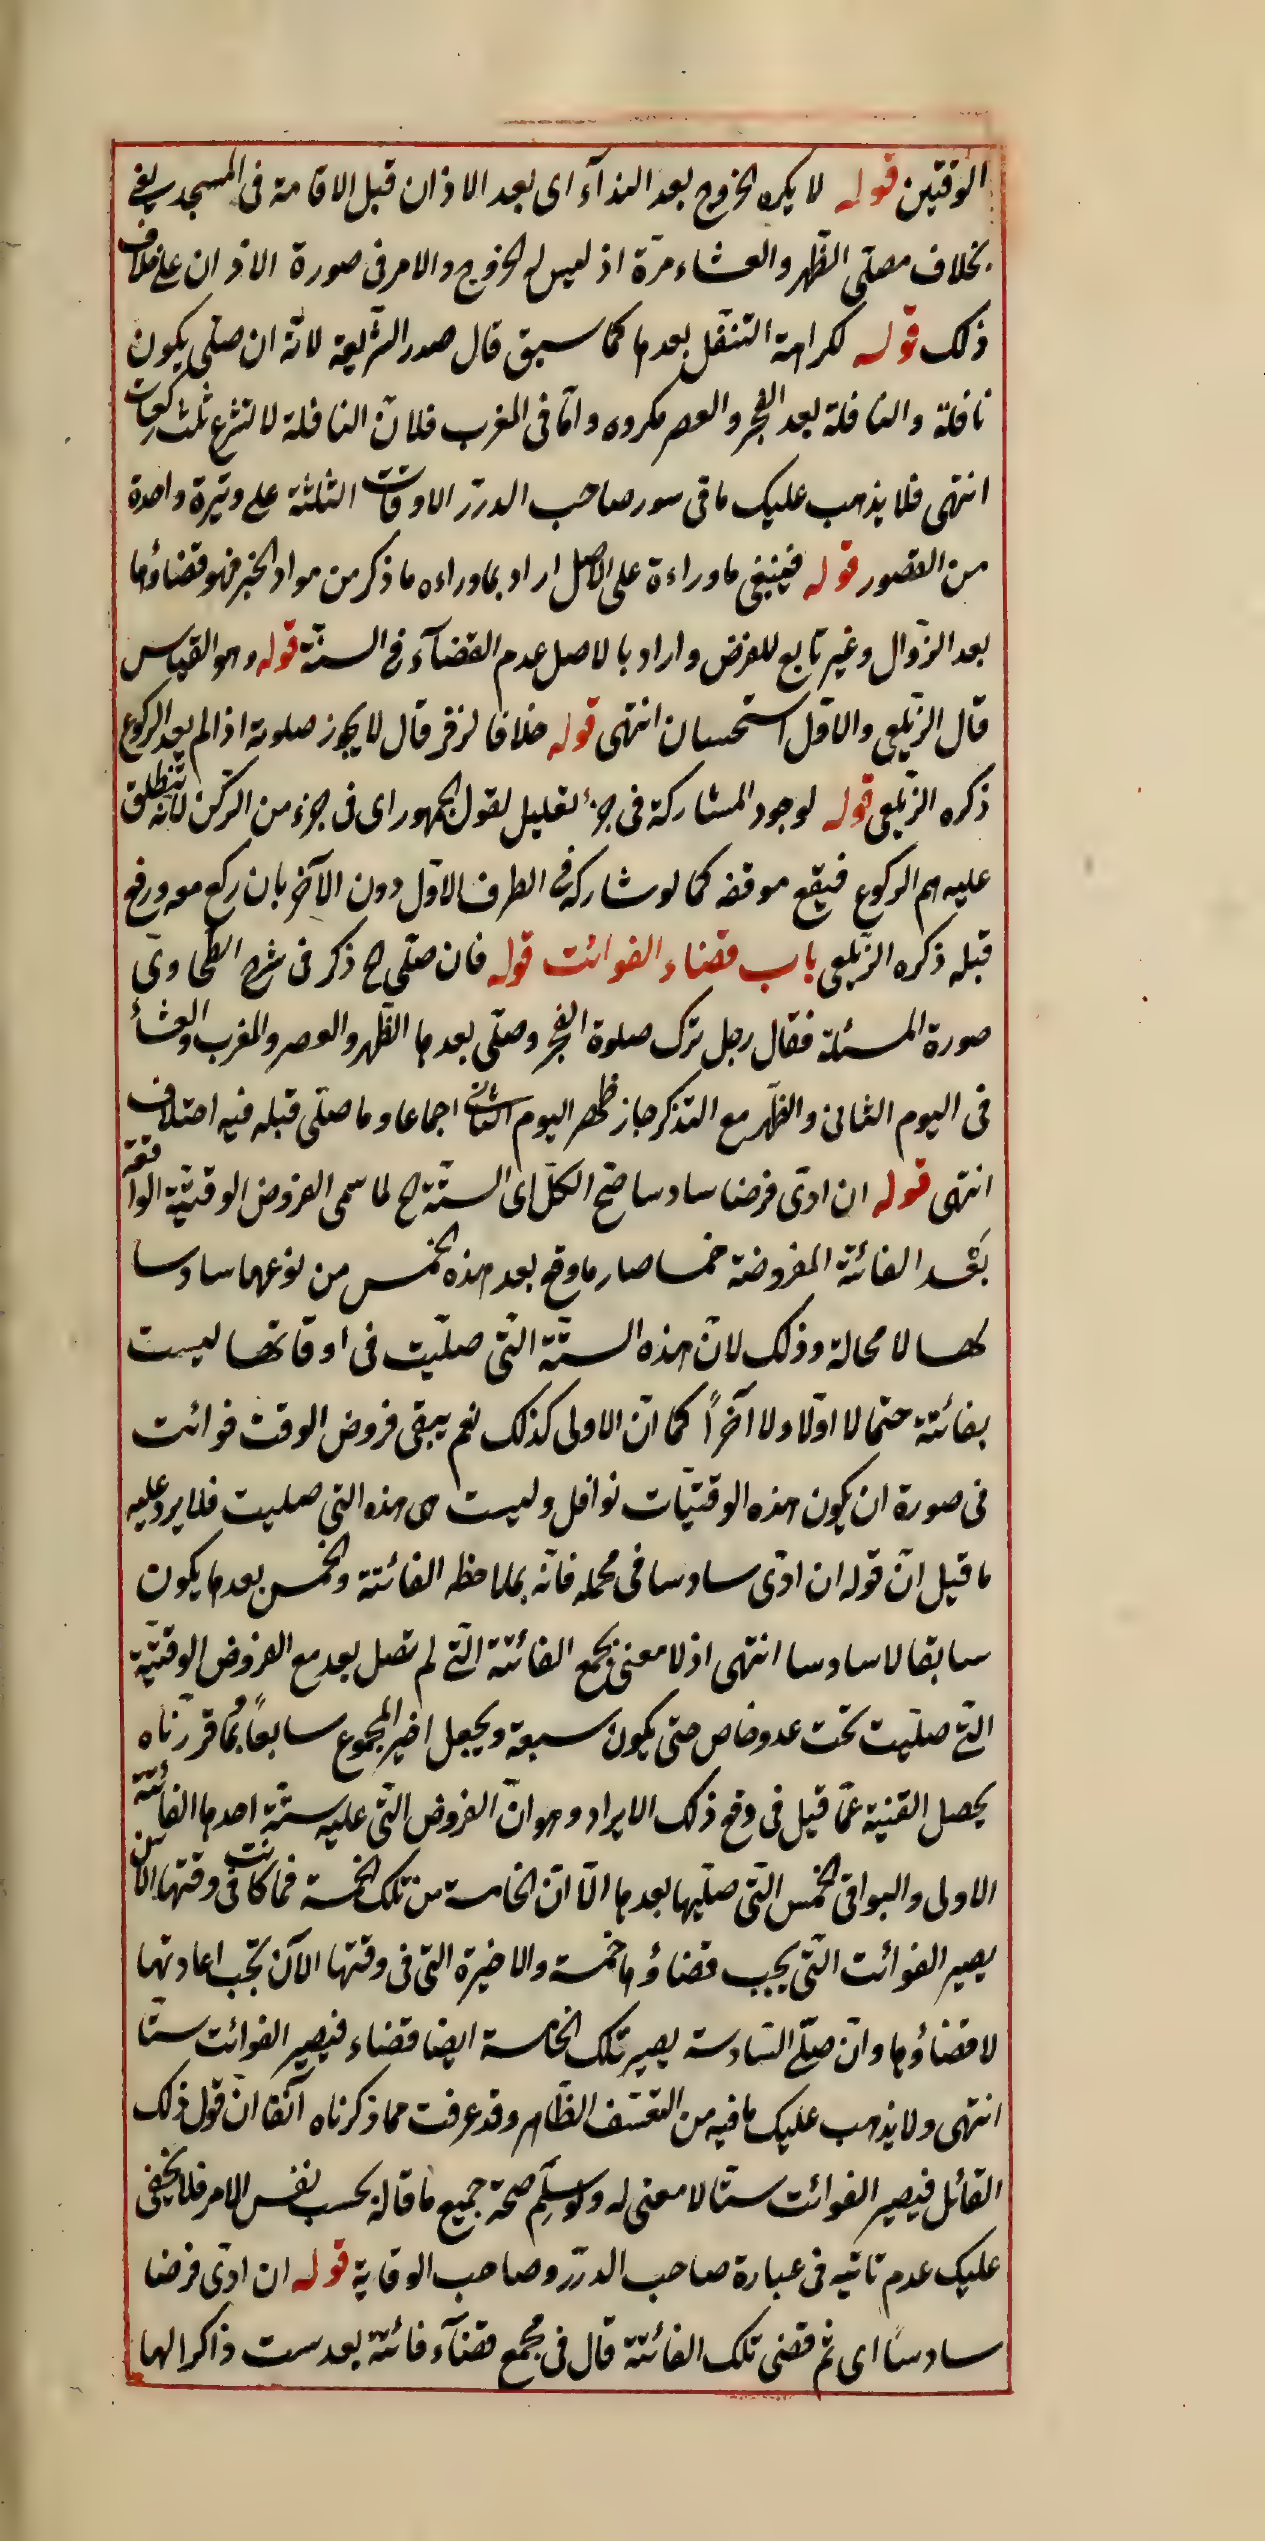 الوقتين قوله لا يكره الخروج بعد النداء اى بعد الاذان قبل الاقامة فى المسجد يعنى
بخلاف مصلّى الظهر والعشاء مرّة اذ ليس له الخروج والامر فى صورة الاذان على خلاف
ذلك قوله لكراهة التنفّل بعدها كما سبق قال صدر الشّريعة لانّه ان صلّى يكون
نافلة والنافلة بعد الفجر والعصر مكروه وامّا فى المغرب فلانّ النافلة لا تشرع ثلث ركعات
انتهى فلا يذهب عليك ما فى سور صاحب الدرر الاوقات الثلثة على وتيرة واحدة
من القصور قوله فينبغى ما وراءه على الاصل اراد بما وراءه ما ذكر من مواد الخبر فهو قضاؤها
بعد الزّوال وغير تابع للفرض واراد بالاصل عدم القضآء فى السنّة قوله وهو القياس
قال الزّيلعى والاوّل استحسان انتهى قوله خلافا لزفر قال لا يجوز صلوته اذا لم يعد الركوع
ذكره الزّيلعى قوله لوجود المشاركة فى جزء تعليل لقول الجمهور اى فى جزء من الركن لانّه ينطلق
عليه اسم الركوع فيقع موقفه كما لو شاركه فى الطرف الاوّل دون الآخر بان ركع معه ورفع
قبله ذكره الزّيلعى باب قضاء الفوائت قوله فان صلّى ح ذكر فى شرح الطّحاوى
صورة المسئلة فقال رجل ترك صلوة الفجر وصلّى بعدها الظّهر والعصر والمغرب والعشأ
فى اليوم الثانى والظّهر مع التذكر جاز ظهر اليوم الثانى اجماعا وما صلّى قبله فيه اختلاف
انتهى قوله ان ادّى فرضا سادسا صحّ الكلّ اى الستّة ح لما سمى الفروض الوقتيّة الواقعة
بَعْد الفائتة المفروضة خمسا صار ما وقع بعد هذه الخمس من نوعهما سادسا
لها لا محالة وذلك لانّ هذه الستّة الّتى صلّيت فى اوقاتها ليست
بفائتة حتما لا اوّلا ولا آخراً كما انّ الاولى كذلك نعم يبقى فروض الوقت فوائت
فى صورة ان يكون هذه الوقتيّات نوافل وليست هى هذه التى صليت فلا يرد عليه
ما قيل انّ قوله ان ادّى سادسا فى محمله فانّه بملاحظه الفائتة والخمس بعدها يكون
سابقا لا سادسا انتهى اذ لا معنى لجمع الفائتة الّتى لم تصل بعد مع الفروض الوقتيّة
الّتى صلّيت تحت عدد خاص حتى يكون سبعة ويجعل اخير المجموع سابعاً وبما قررناه
يحصل الغنية عمّا قيل فى دفع ذلك الايراد وهو انّ الفروض الّتى عليه ستّة احدها الفائتة
الاولى والبواقى الخمس الّتى صلّيها بعدها الّا انّ الخامسة من تلك الخمسة فما كانت فى وقتها الآن
يصير الفوائت الّتى يجب قضاؤها خمسة والاخيرة التى فى وقتها الآن تجب اعادتها
لا قضاؤها وان صلّى السّادسة يصير تلك الخامسة ايضا قضاء فيصير الفوائت ستّا
انتهى ولا يذهب عليك ما فيه من التعسّف الظّاهر وقد عرفت مما ذكرناه آنفا انّ قول ذلك
القائل فيصير الفوائت ستّا لا معنى له ولو سلّم صحّة جميع ما قاله بحسب نفس الامر فلا يخفى
عليك عدم تاتيه فى عبارة صاحب الدرّر وصاحب الوقاية قوله ان ادّى فرضا
سادساً اى ثم قضى تلك الفائتة قال فى مجمع قضآء فائتة بعد ست ذاكرا لها